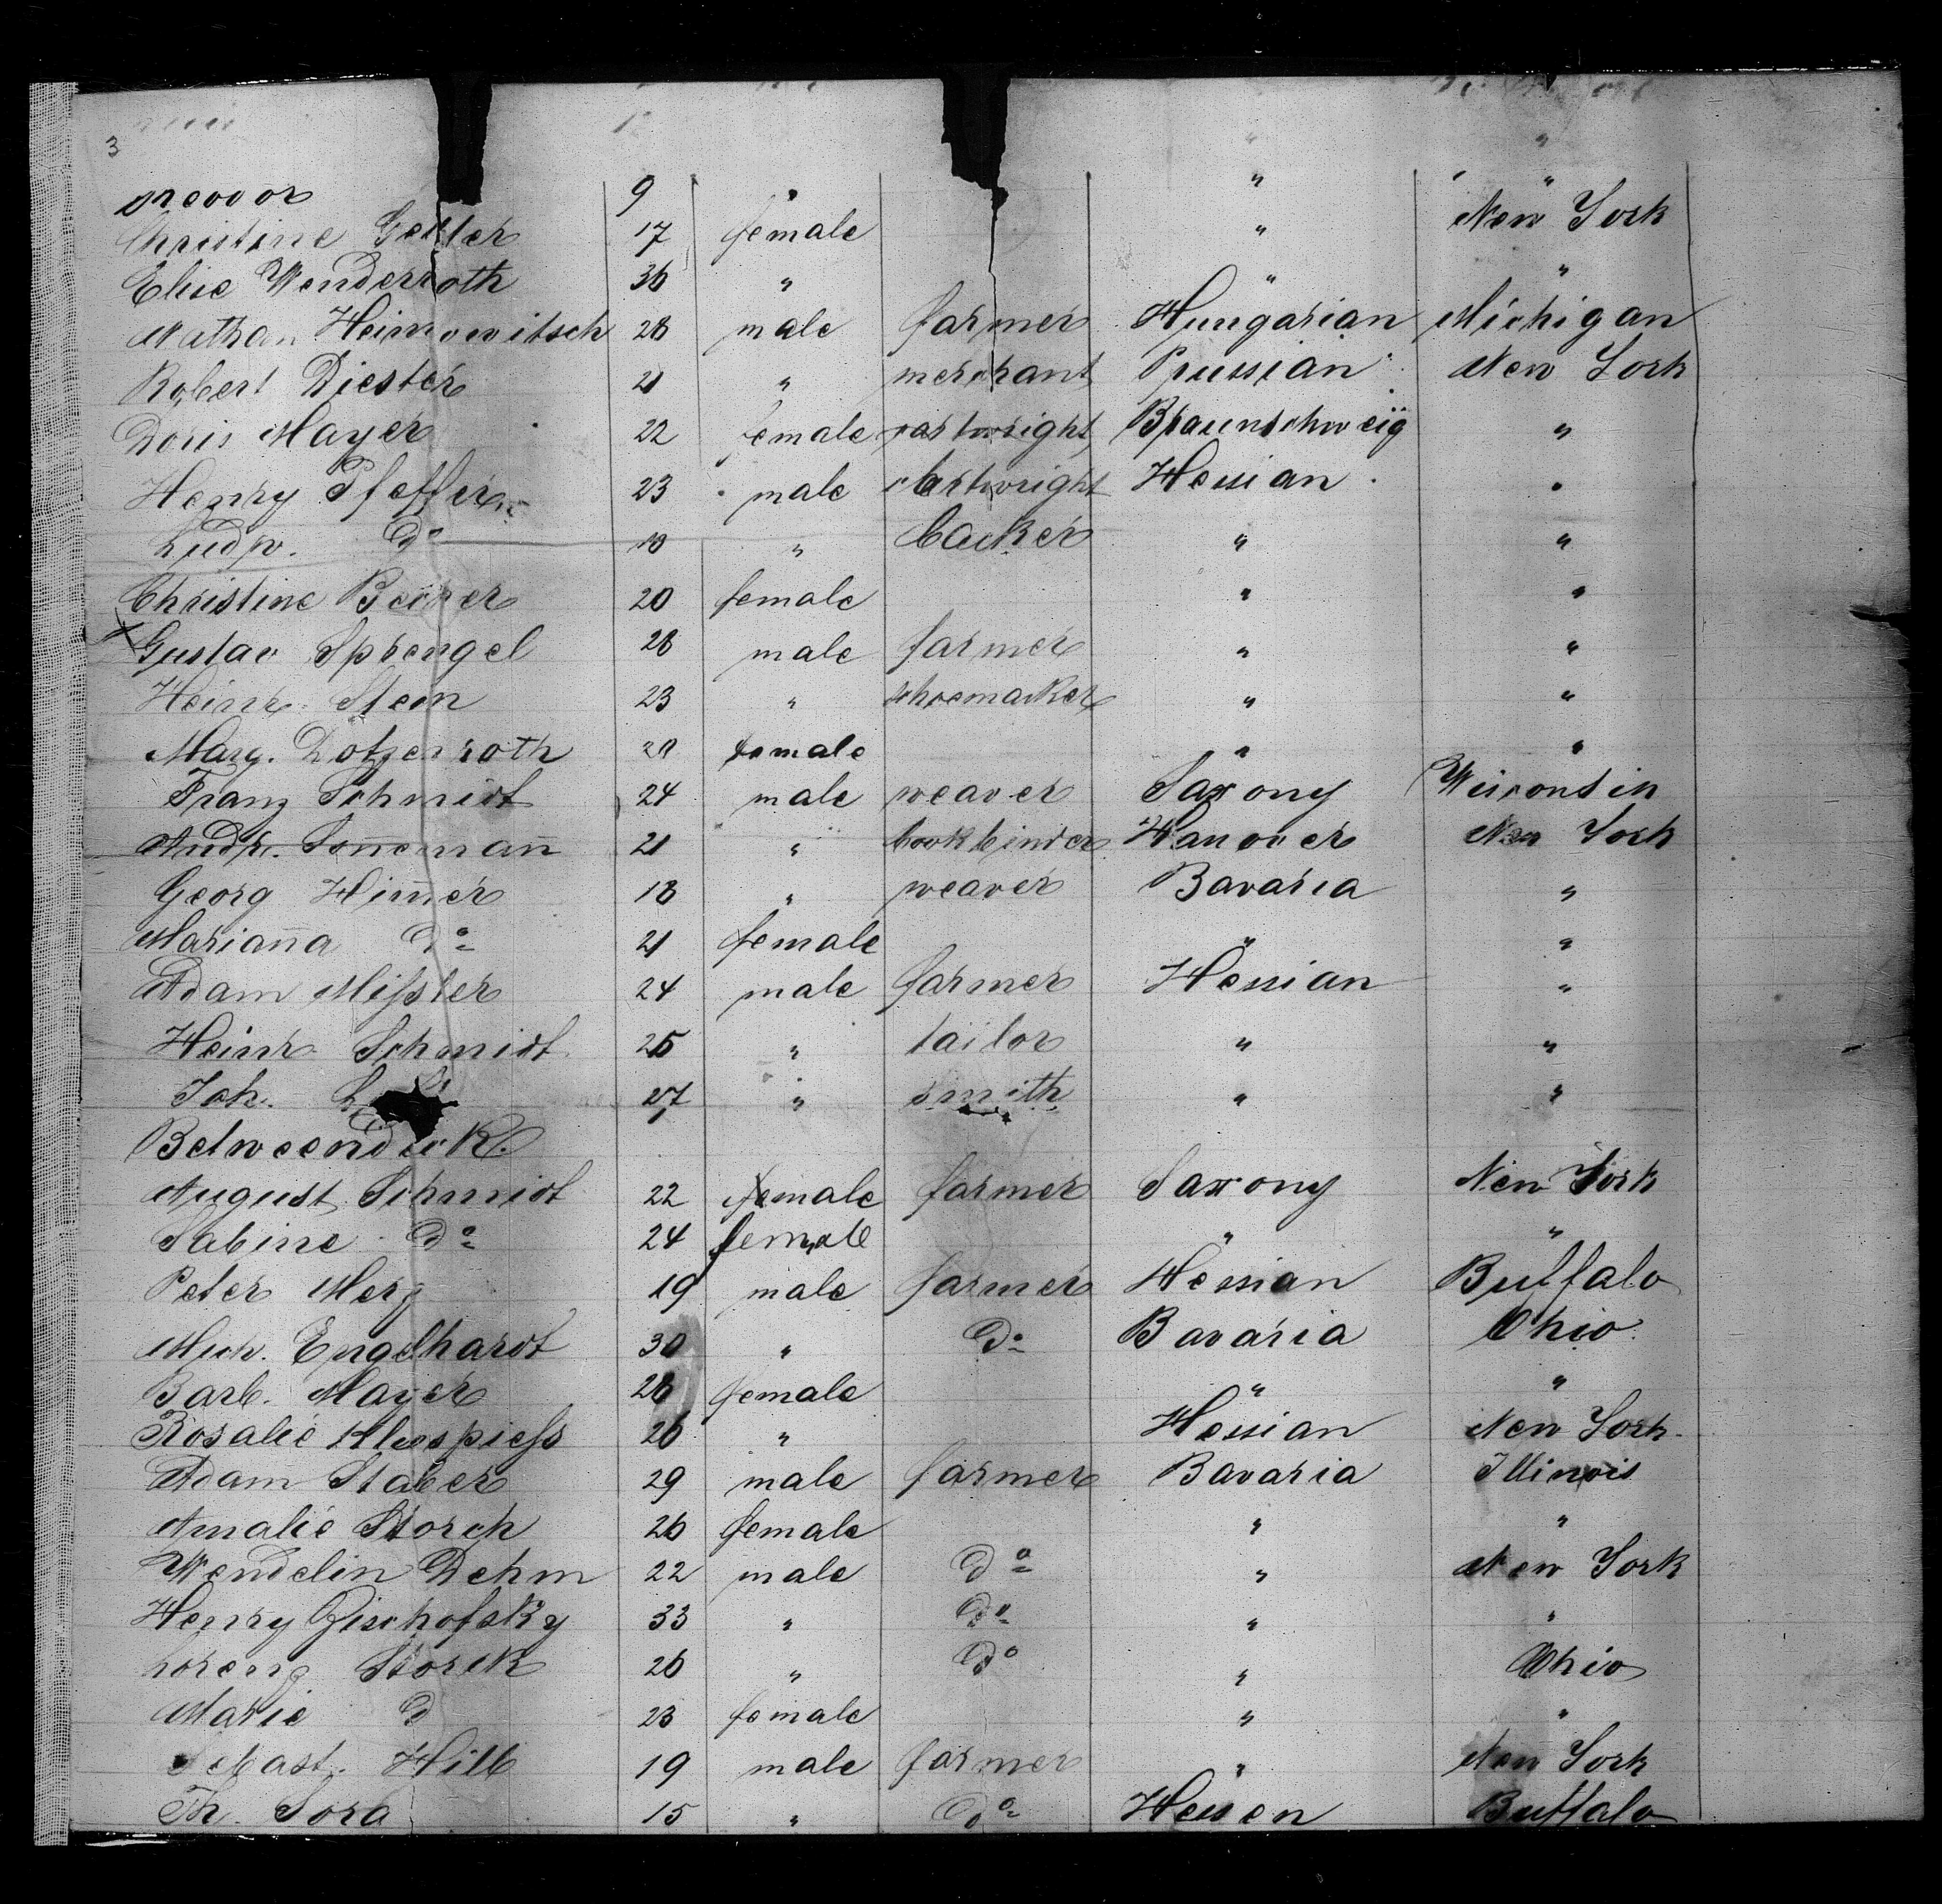 3
9 " " "
Christine Geller 17 female " New York
Elise Wenderroth 36 " " "
Nathan Heimowitsch 28 male farmer Hungarian Michigan
Robert Diester 21 " merchant Prussian New York
Doris Mayer 22 female cartwright Braunschweig "
Henry Pfeffer 23 male cartwright Hessian "
Ludw. Do 19 " backer " "
Christine 20 female " "
Gustav Sprengel 28 male farmer " "
Heinr. Stein 23 " schoemacker " "
Marg. Lotzerroth female " "
Franz Schmidt 24 male weaver Saxony Wisconsin
Andr. Soñemañ 21 " bookbinder Hanover New York
Georg Him̄er 18 " weaver Bavaria "
Mariañа Do 21 female " "
Adam Mißler 24 male farmer Hessian "
Heinr. Schmidt 25 " tailor " "
Joh. 27 " smith " "
Betweendeck.
August Schmidt 22 male farmer Saxony New York
Sabine Do 24 female " "
Peter Merz 19 male farmer Hessian Buffalo
Mich. Engelhardt 30 " Do Bavaria Ohio
Barb. Mayer 28 female " "
Rosalie Kluspieß 26 " Hessian New York
Adam Staber 29 male farmer Bavaria Illinois
Amalie Storch 26 female " "
Wendelin Dehm 22 male Do " New York
Henry Gischofsky 33 " Do " "
Lorenz Storck 26 " Do " Ohio
Marie D 23 female " "
Sebast. Hilb 19 male farmer " New York
Th. Sora 15 " Do Hessen Buffalo